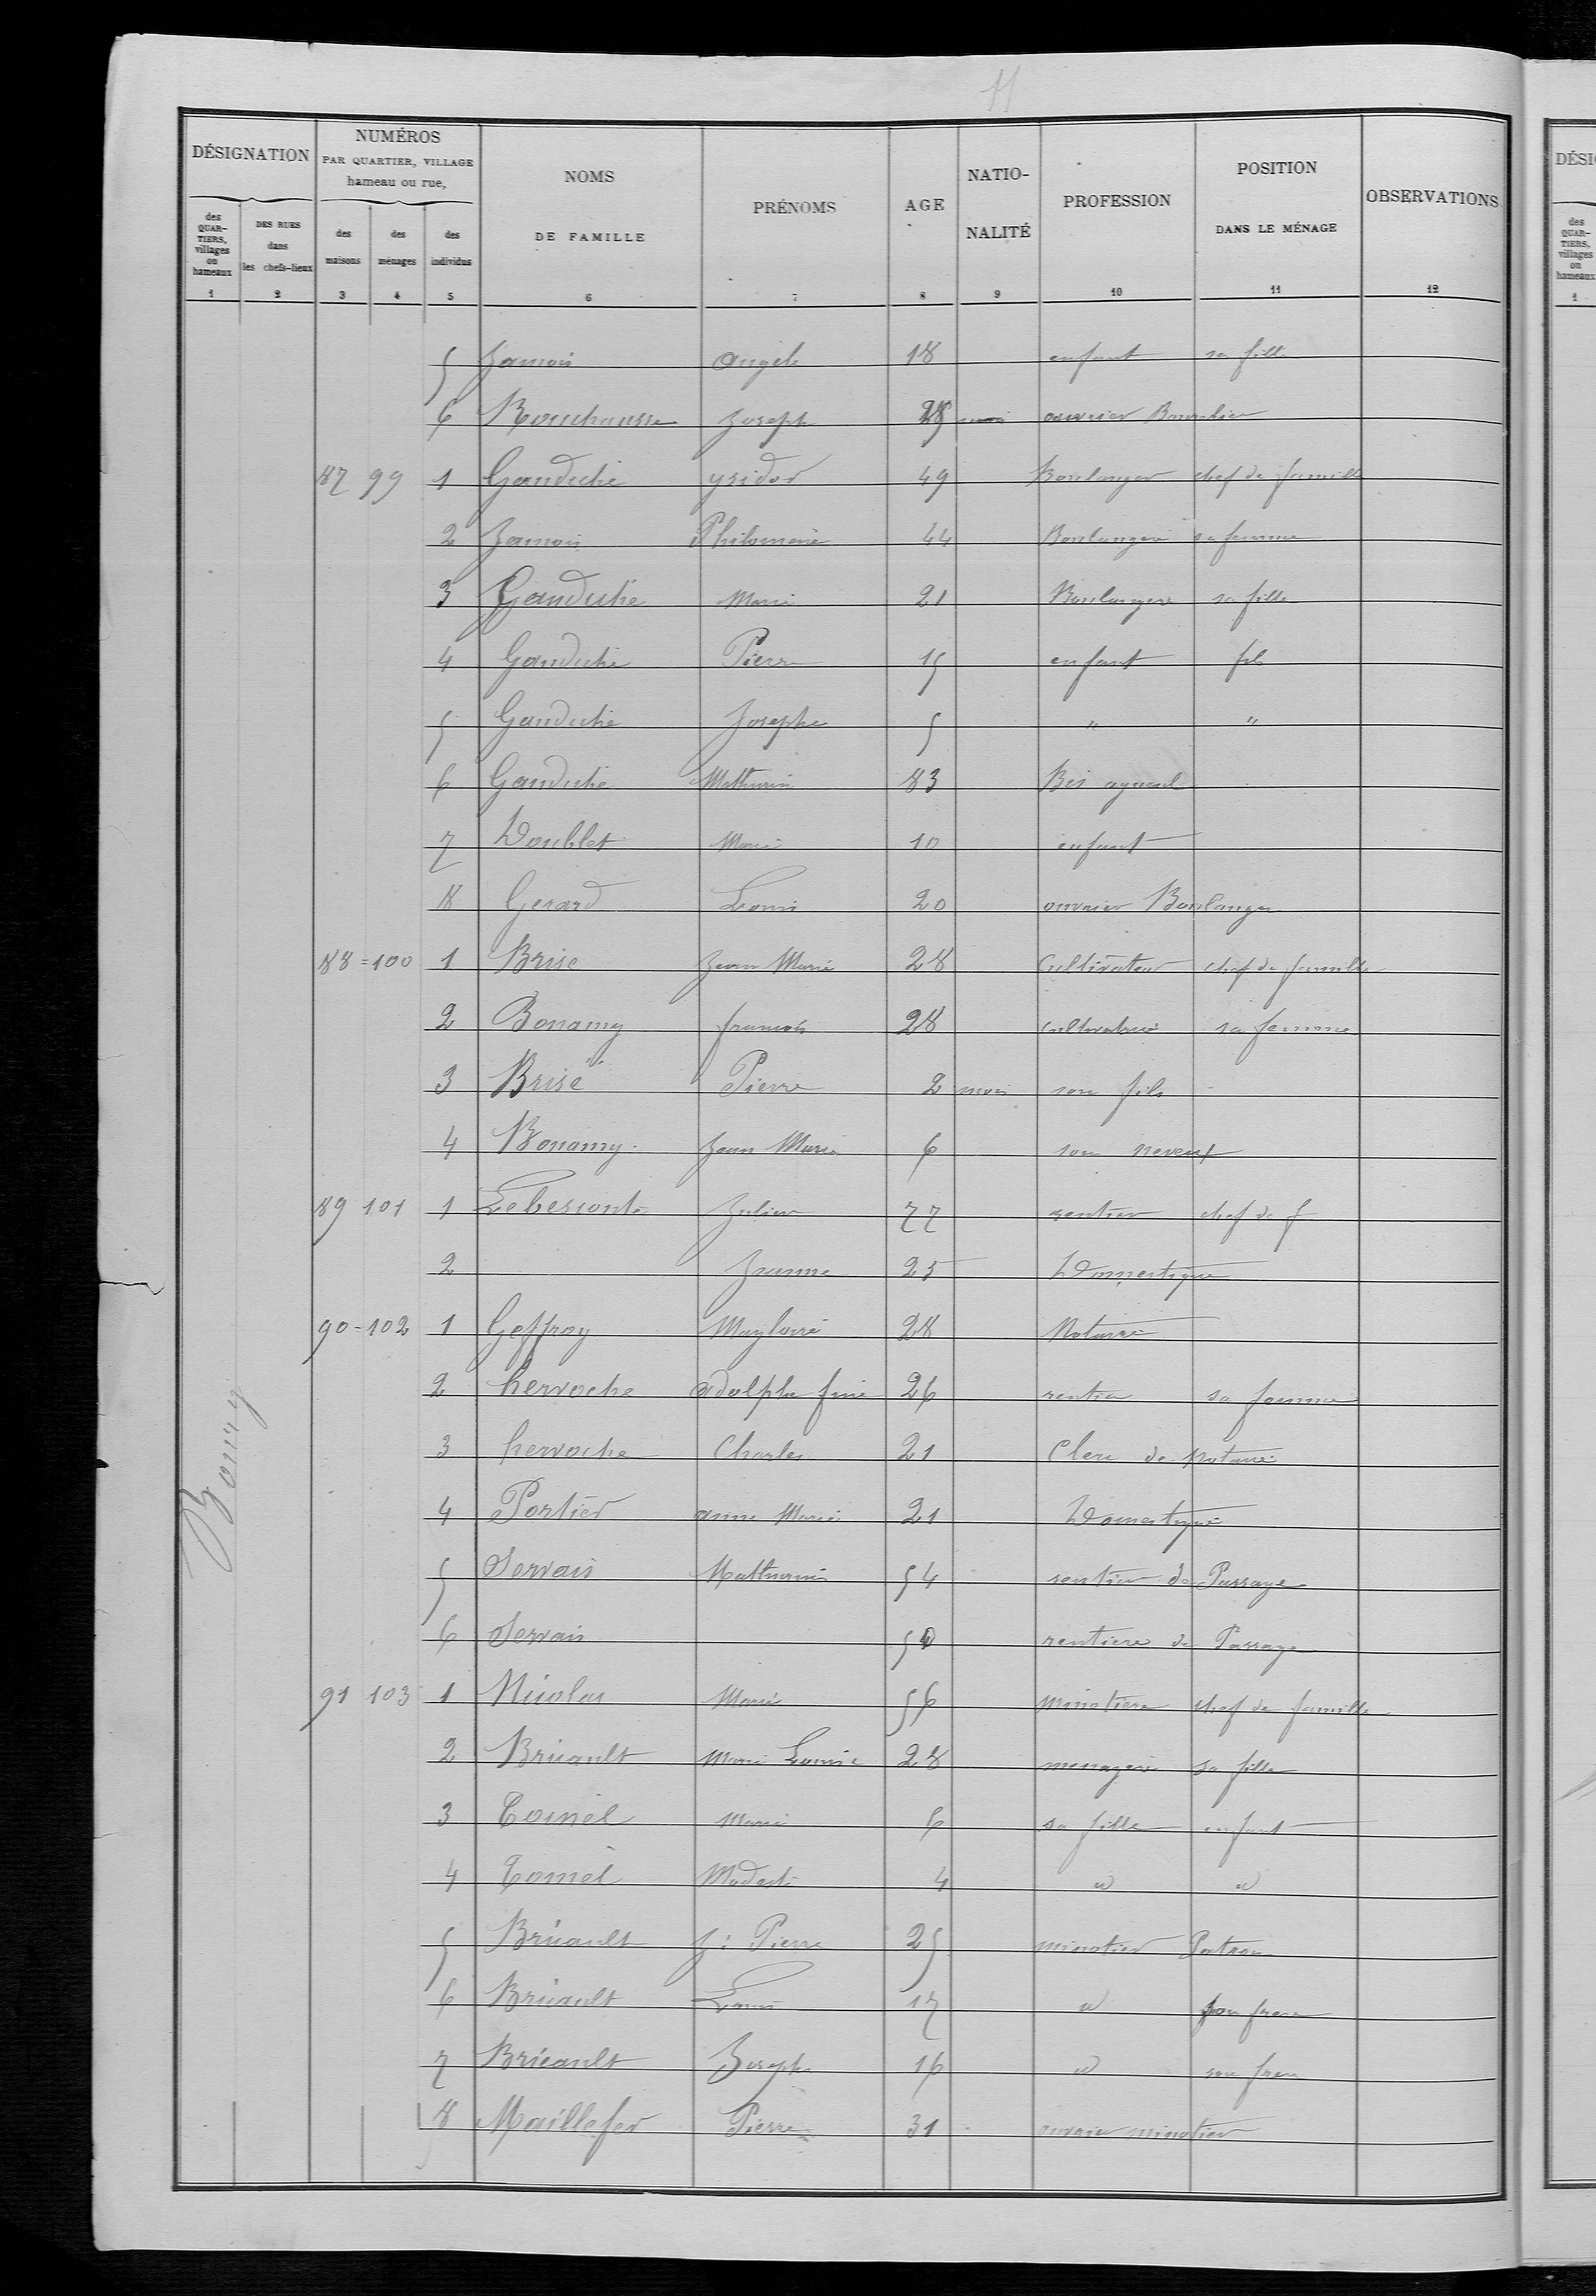 11
DÉSIGNATION
NUMÉROS
PAR QUARTIER, VILLAGE
hameau ou rue,
NOMS
DE FAMILLE
PRÉNOMS
AGE
NATIO-
NALITÉ
PROFESSION
POSITION
DANS LE MÉNAGE
OBSERVATIONS
des
QUAR-
TIERS,
villages
ou
hameaux
DES RUES
dans
les chefs-lieux
des
maisons
des
ménages
des
individus
1 2 3 4 5 6 7 8 9 10 11 12
Bourg
5 Jamois Angele 18 enfant sa fille
6 Joseph ouvrier Bourrelier
87 99 1 Gauduchie ysidor 49 Boulanger chef de famille
2 Jamois Philomene 44 Boulangere sa femme
3 Gauduchie Marie 21 Boulangere sa fille
4 Gauduchie Pierre 15 enfant fils
5 Gauduchie Josephe 5 " "
6 Gauduchie Mathurin 83 Bis ayneul
7 Doublet Marie 10 enfant
8 Gerard Louis 20 ouvrier Boulanger
88 = 100 1 Brise Jean Marie 28 Cultivateur chef de famille
2 Bonamy 28 sa femme
3 Brisé Pierre 2 mois son fils
4 Bonamy Jean Marie 6 son neveux
89 101 1 Lebesconte Julien 77 rentier chef de f
2 Jeanne 25 Domestique
90 = 102 1 Geffroy 28 Notaire
2 hervoche adolphe fine 26 sa femme
3 hervoche Charles 21 Clerc de Notaire
4 Portier anne Marie 21 Domestique
5 Servais Mathurin 54 rentier de Passage
6 Servais rentiere de Passage
91 103 1 Nicolas Marie 56 minotiere chef de famille
2 Bruault Marie Louise 28 menagere sa fille
3 Comel Marie 6 sa fille enfant
4 Comel Modeste 4 d d
5 Bruault J: Pierre 25 minotier Patron
6 Bruault Louis 17 d son frere
7 Bruault Joseph 16 d son frere
8 Maillefer Pierre 31 ouvrier minotier
DÉSI
des
QUAR-
TIERS,
villages
ou
hameaux
1